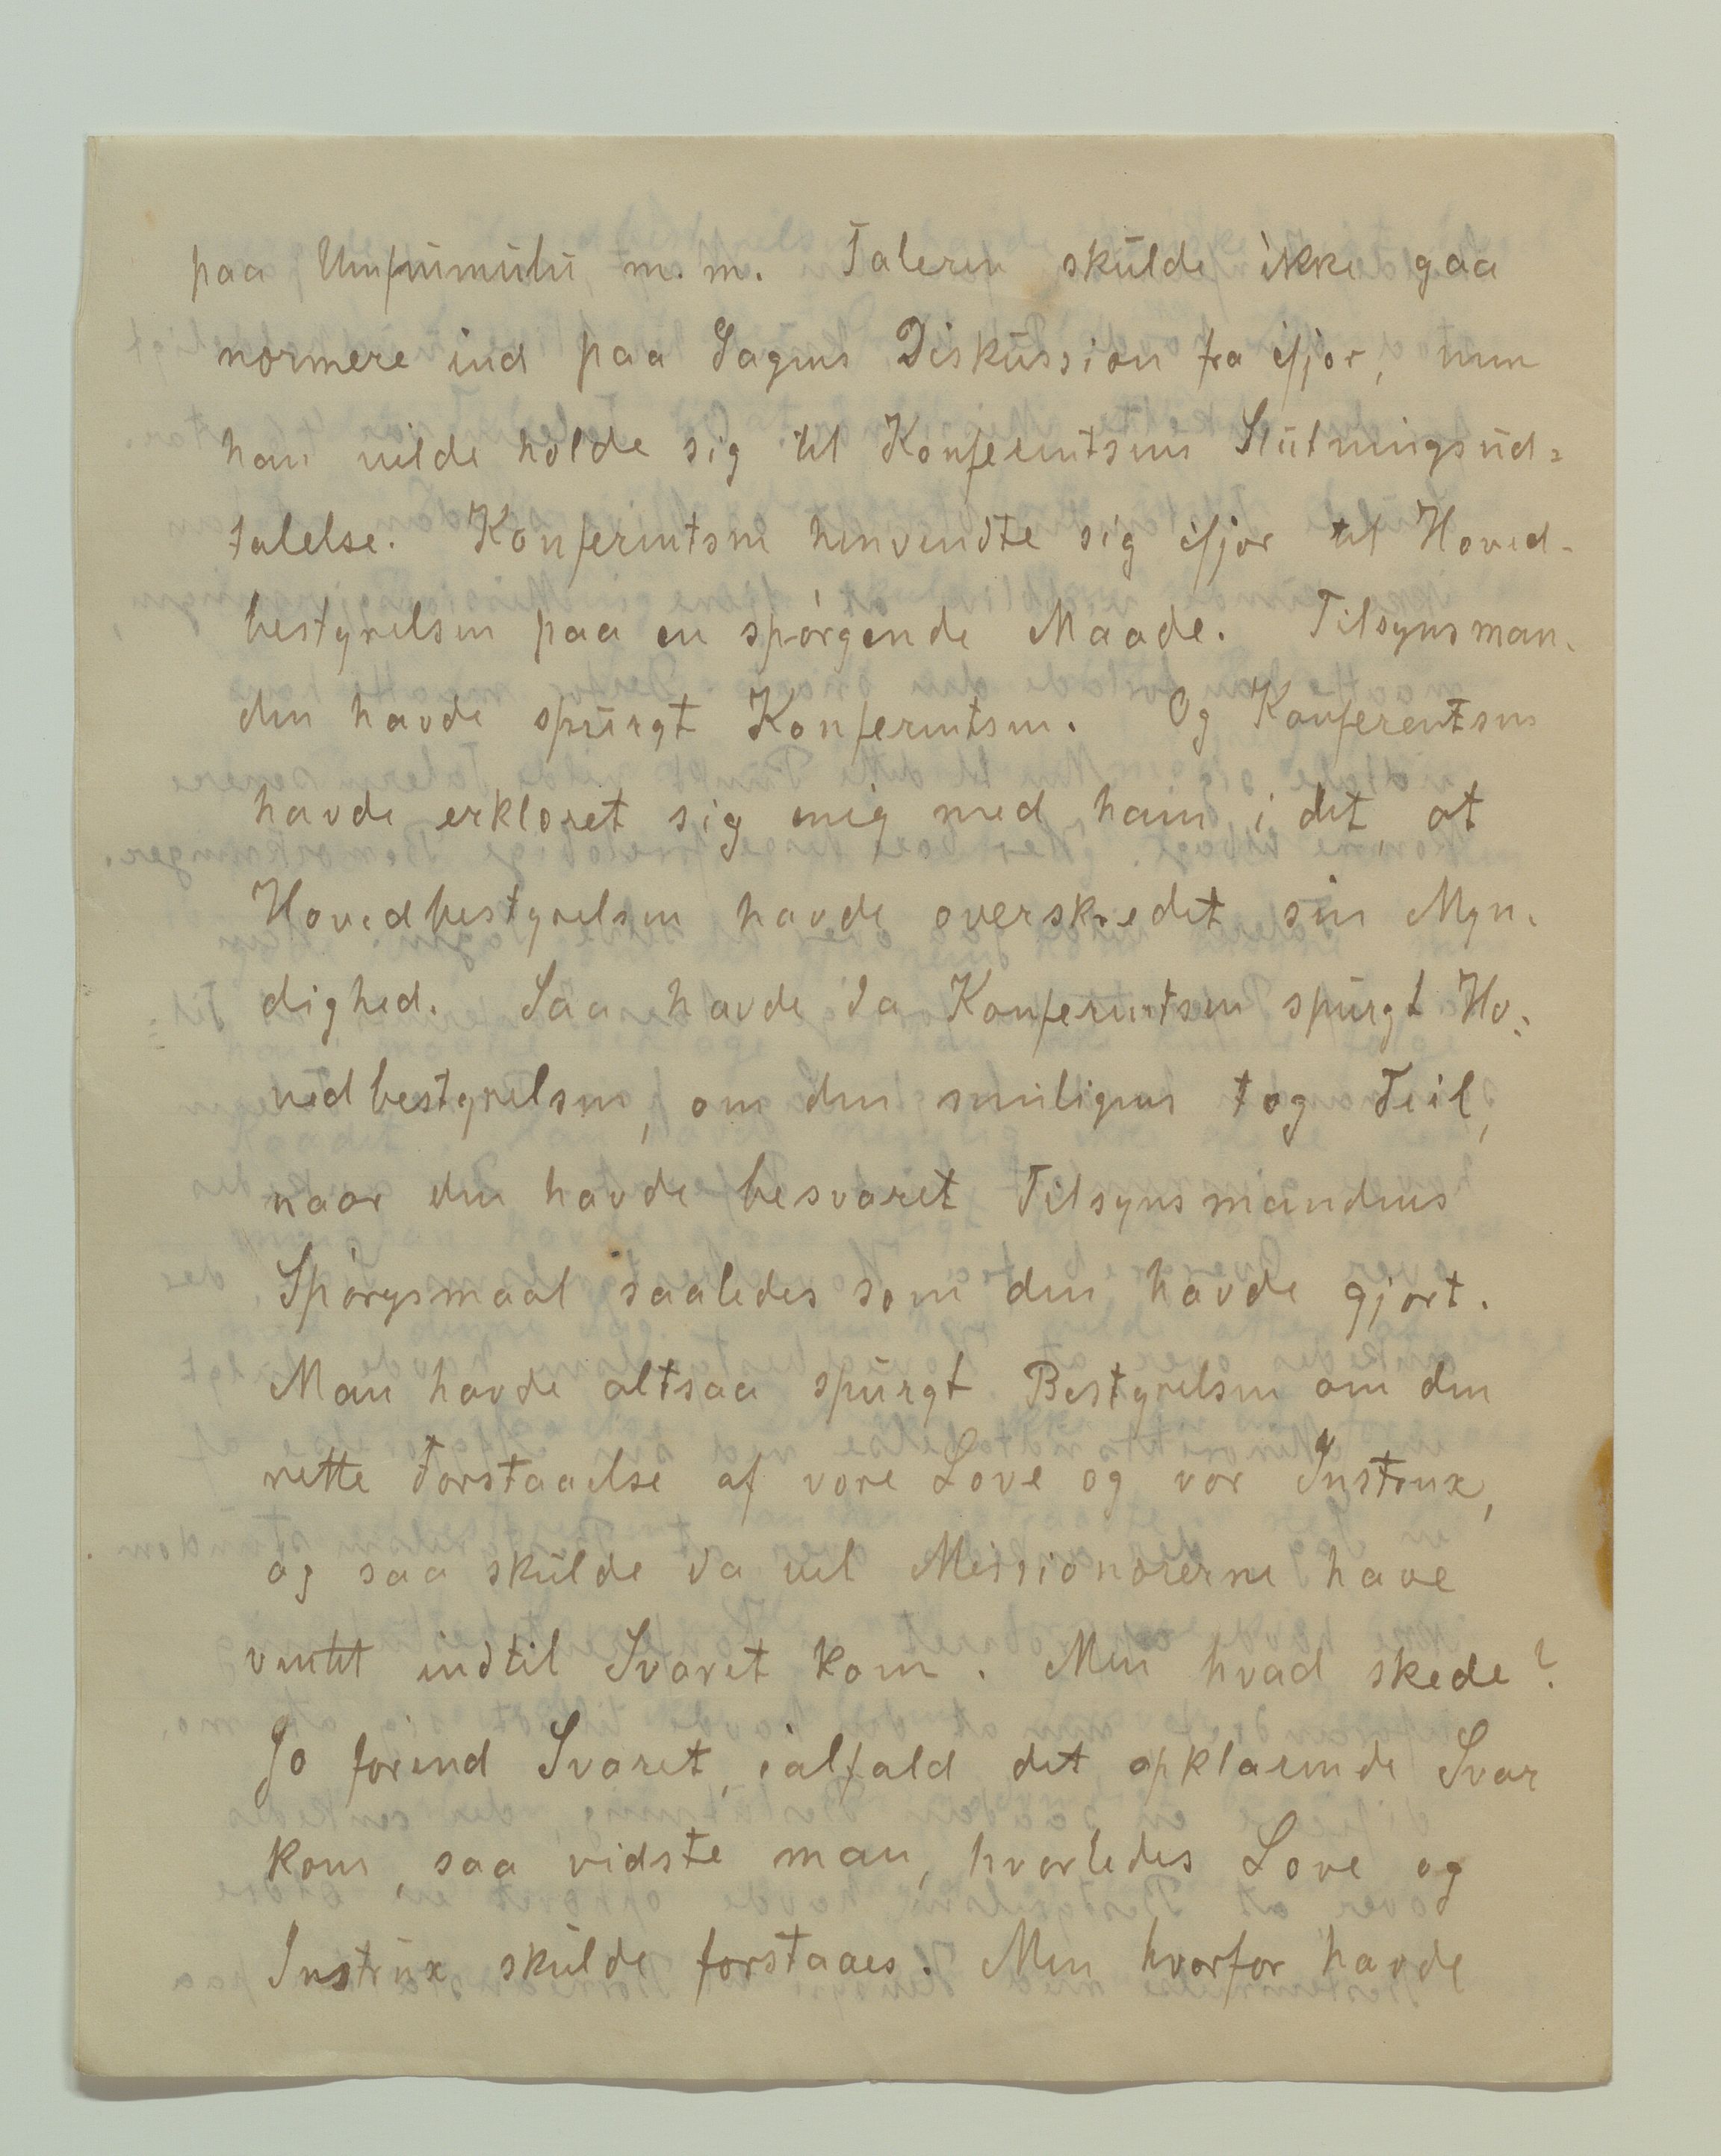 paa Umpumulu m. m. Taleren skulde ikke gaa
nærmere ind paa Sagens Diskussion fra ifjor, men
han vilde holde sig til Konferentsens Slutningsud=
talelse. Konferentsen henvendte sig ifjor til Hoved-
bestyrelsen paa en spørgende Maade. Tilsynsman-
den havde spurgt Konferentsen. Og Konferentsen
havde erklæret sig enig med ham i det, at
Hovedbestyrelsen havde overskredet sin Myn-
dighed. Saa havde da Konferentsen spurgt Ho=
vedbestyrelsen, om den virkeligen tog Feil,
naar den havde besvaret Tilsynsmandens
Spørgsmaal saaledes som den havde gjort.
Man havde altsaa spurgt Bestyrelsen om den
rette Forstaaelse af vore Love og vor Instrux,
og saa skulde da vel Missionærerne have
ventet indtil Svaret kom. Men hvad skede?
Jo førend Svaret, ialfald det opklarende Svar
kom, saa vidste man, hvorledes Love og
Instrux skulde forstaaes. Men hvorfor havde